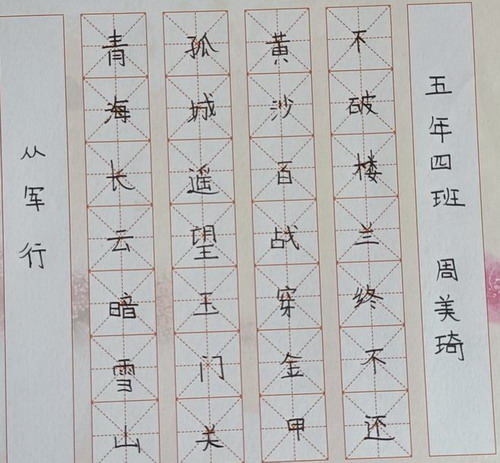 从军行
青海长云暗雪山
孤城遥望玉门关
黄沙百战穿金甲
不破楼兰终不还
五年四班 周美琦